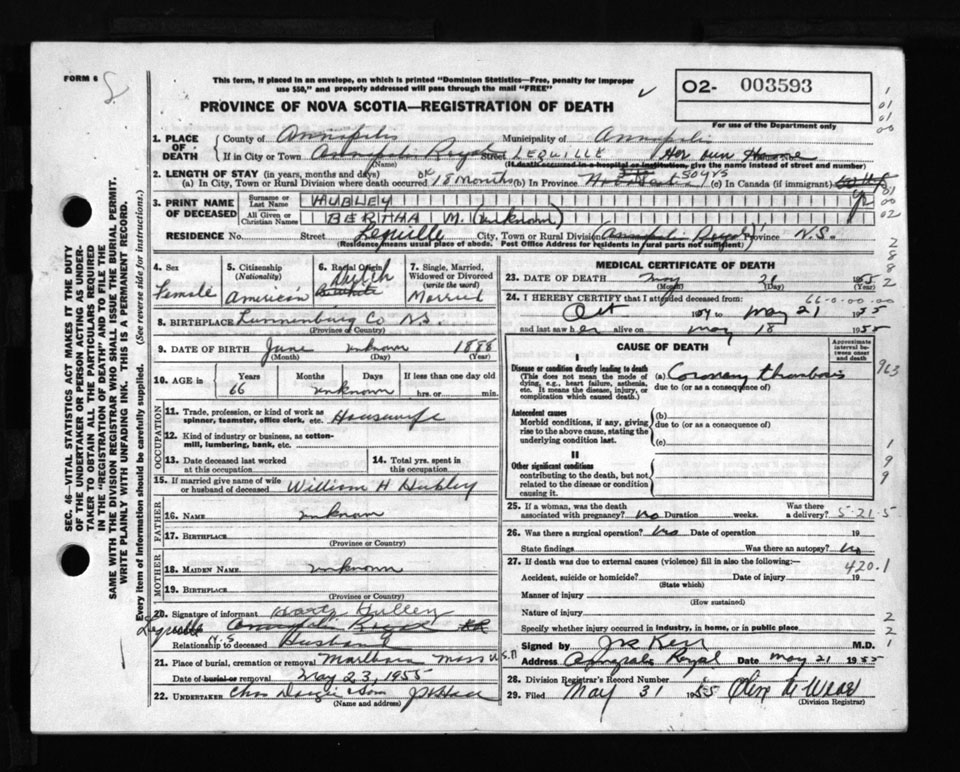 FORM 6
This form, if placed in an envelope, on which is printed "Dominion Statistics—Free, penalty for improper
use $50," and properly addressed will pass through the mail "FREE"
PROVINCE OF NOVA SCOTIA—REGISTRATION OF DEATH
O2- 003593
For use of the Department only
1. PLACE OF DEATH { County of Annapolis Municipality of Annapolis
If in City or Town Annapolis Royal Street LEQUILLE Her own Home
(Name) (If death occurred in a hospital or institution, give the name instead of street and number)
2. LENGTH OF STAY (in years, months and days)
(a) In City, Town or Rural Division where death occurred 18 months (b) In Province 50 yrs (c) In Canada (if immigrant)
3. PRINT NAME OF DECEASED { Surname or Last Name HUBLEY
All Given or Christian Names BERTHA M. (unknown)
RESIDENCE No. Street Lequille City, Town or Rural Division Annapolis Royal Province N.S.
(Residence means usual place of abode. Post Office Address for residents in rural parts not sufficient)
4. Sex Female
5. Citizenship (Nationality) American
6. Racial Origin
7. Single, Married, Widowed or Divorced (write the word) Married
8. BIRTHPLACE Lunnenburg Co N.S.
(Province or Country)
9. DATE OF BIRTH June unknown 1888
(Month) (Day) (Year)
10. AGE in { Years 66 Months unknown Days If less than one day old hrs. or min.
OCCUPATION
11. Trade, profession, or kind of work as spinner, teamster, office clerk, etc. Housewife
12. Kind of industry or business, as cotton-mill, lumbering, bank, etc.
13. Date deceased last worked at this occupation
14. Total yrs. spent in this occupation
15. If married give name of wife or husband of deceased William H Hubley
FATHER
16. NAME unknown
17. BIRTHPLACE
(Province or Country)
MOTHER
18. MAIDEN NAME unknown
19. BIRTHPLACE
(Province or Country)
20. Signature of informant
Lequille Annapolis Royal
Relationship to deceased N.S Husband
21. Place of burial, cremation or removal Marlboro Mass U.S.A
Date of burial or removal May 23, 1955
22. UNDERTAKER Chas & Son
(Name and address)
MEDICAL CERTIFICATE OF DEATH
23. DATE OF DEATH May 21 1955
(Month) (Day)
24. I HEREBY CERTIFY that I attended deceased from: 66-0-00-00
Oct 1954 to May 21 1955
and last saw her alive on May 18 1955
CAUSE OF DEATH
Approximate interval between onset and death
I
Disease or condition directly leading to death
(This does not mean the mode of dying, e.g., heart failure, asthenia, etc. It means the disease, injury, or complication which caused death.)
(a) Coronary thrombosis
due to (or as a consequence of)
963
Antecedent causes
Morbid conditions, if any, giving rise to the above cause, stating the underlying condition last.
(b)
due to (or as a consequence of)
(c)
II
Other significant conditions
contributing to the death, but not related to the disease or condition causing it.
25. If a woman, was the death associated with pregnancy? no Duration weeks. Was there a delivery? 5-21-5
26. Was there a surgical operation? No Date of operation 19
State findings Was there an autopsy? No
27. If death was due to external causes (violence) fill in also the following:—
420.1
Accident, suicide or homicide? Date of injury 19
(State which)
Manner of injury
(How sustained)
Nature of injury
Specify whether injury occurred in industry, in home, or in public place
Signed by M.D.
Address Annapolis Royal Date May 21 1955
28. Division Registrar's Record Number
29. Filed May 31 1955
(Division Registrar)
SEC. 46—VITAL STATISTICS ACT MAKES IT THE DUTY
OF THE UNDERTAKER OR PERSON ACTING AS UNDER-
TAKER TO OBTAIN ALL THE PARTICULARS REQUIRED
IN THE "REGISTRATION OF DEATH" AND TO FILE THE
SAME WITH THE DIVISION REGISTRAR WHO SHALL ISSUE THE BURIAL PERMIT.
WRITE PLAINLY WITH UNFADING INK. THIS IS A PERMANENT RECORD.
Every item of Information should be carefully supplied. (See reverse side for instructions.)